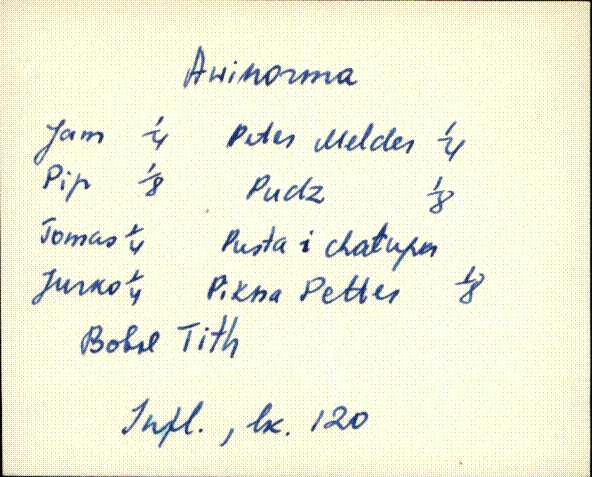 Awinorma
Jam 1/4 Peter Melder 1/4
Pip 1/8 Pudz 1/8
Tomas 1/4 Pusta i chałupa
Jurko 1/4 Pikna Petter 1/8
Tith
Infl., lk. 120